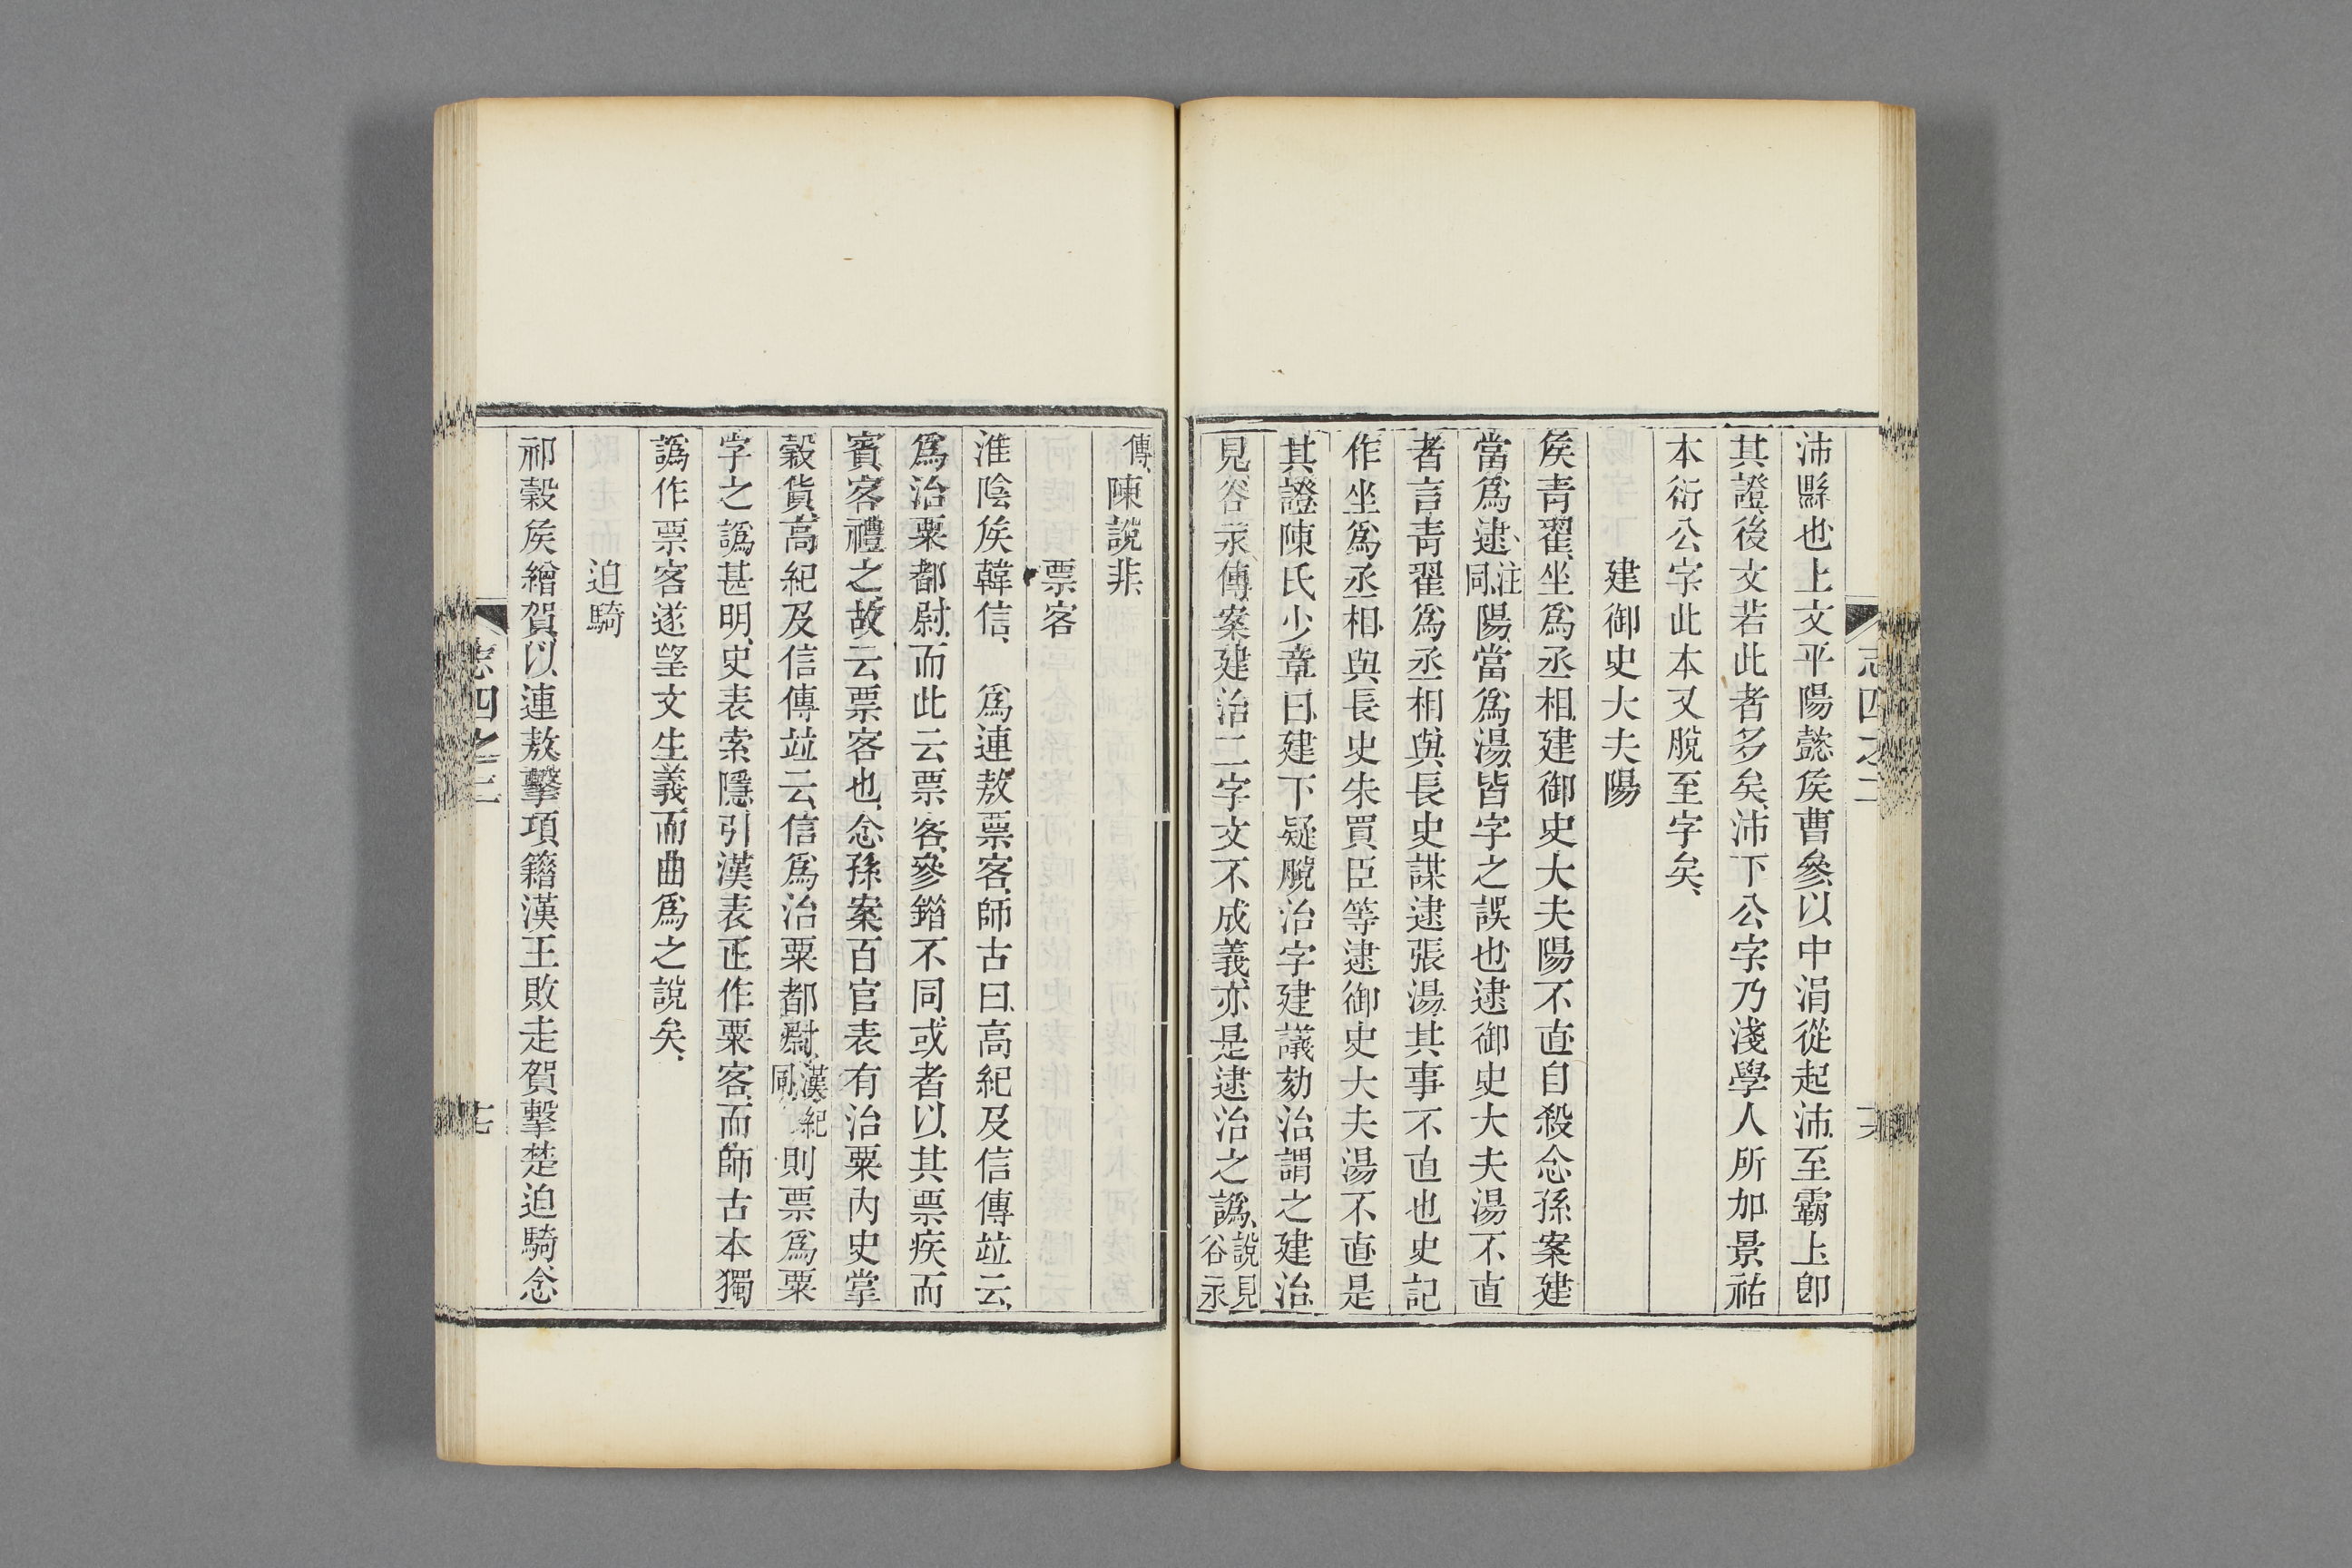 沛縣也上文平陽懿矦曹參以中涓從起沛至霸上卽
其證後文若此者多矣沛下公字乃淺學人所加景祐
本衍公字此本又脫至字矣
建御史大夫陽
矦青翟坐爲丞相建御史大夫陽不直自殺念孫案建
當爲逮注同陽當爲湯皆字之誤也逮御史大夫湯不直
者言青翟爲丞相與長史謀逮張湯其事不直也史記
作坐爲丞相與長史朱買臣等逮御史大夫湯不直是
其證陳氏少章曰建下疑脫治字建議劾治謂之建治
見谷永傳案建治二字文不成義亦是逮治之譌說見谷永
傳陳說非
票客
淮陰矦韓信　爲連敖票客師古曰高紀及信傳竝云
爲治粟都尉而此云票客參錯不同或者以其票疾而
賓客禮之故云票客也念孫案百官表有治粟內史掌
穀貨高紀及信傳竝云信爲治粟都尉漢紀同則票爲粟
字之譌甚明史表索隱引漢表正作粟客而師古本獨
譌作票客遂望文生義而曲爲之說矣
迫騎
祁穀矦繒賀以連敖擊項籍漢王敗走賀擊楚迫騎念
志四之二
十七